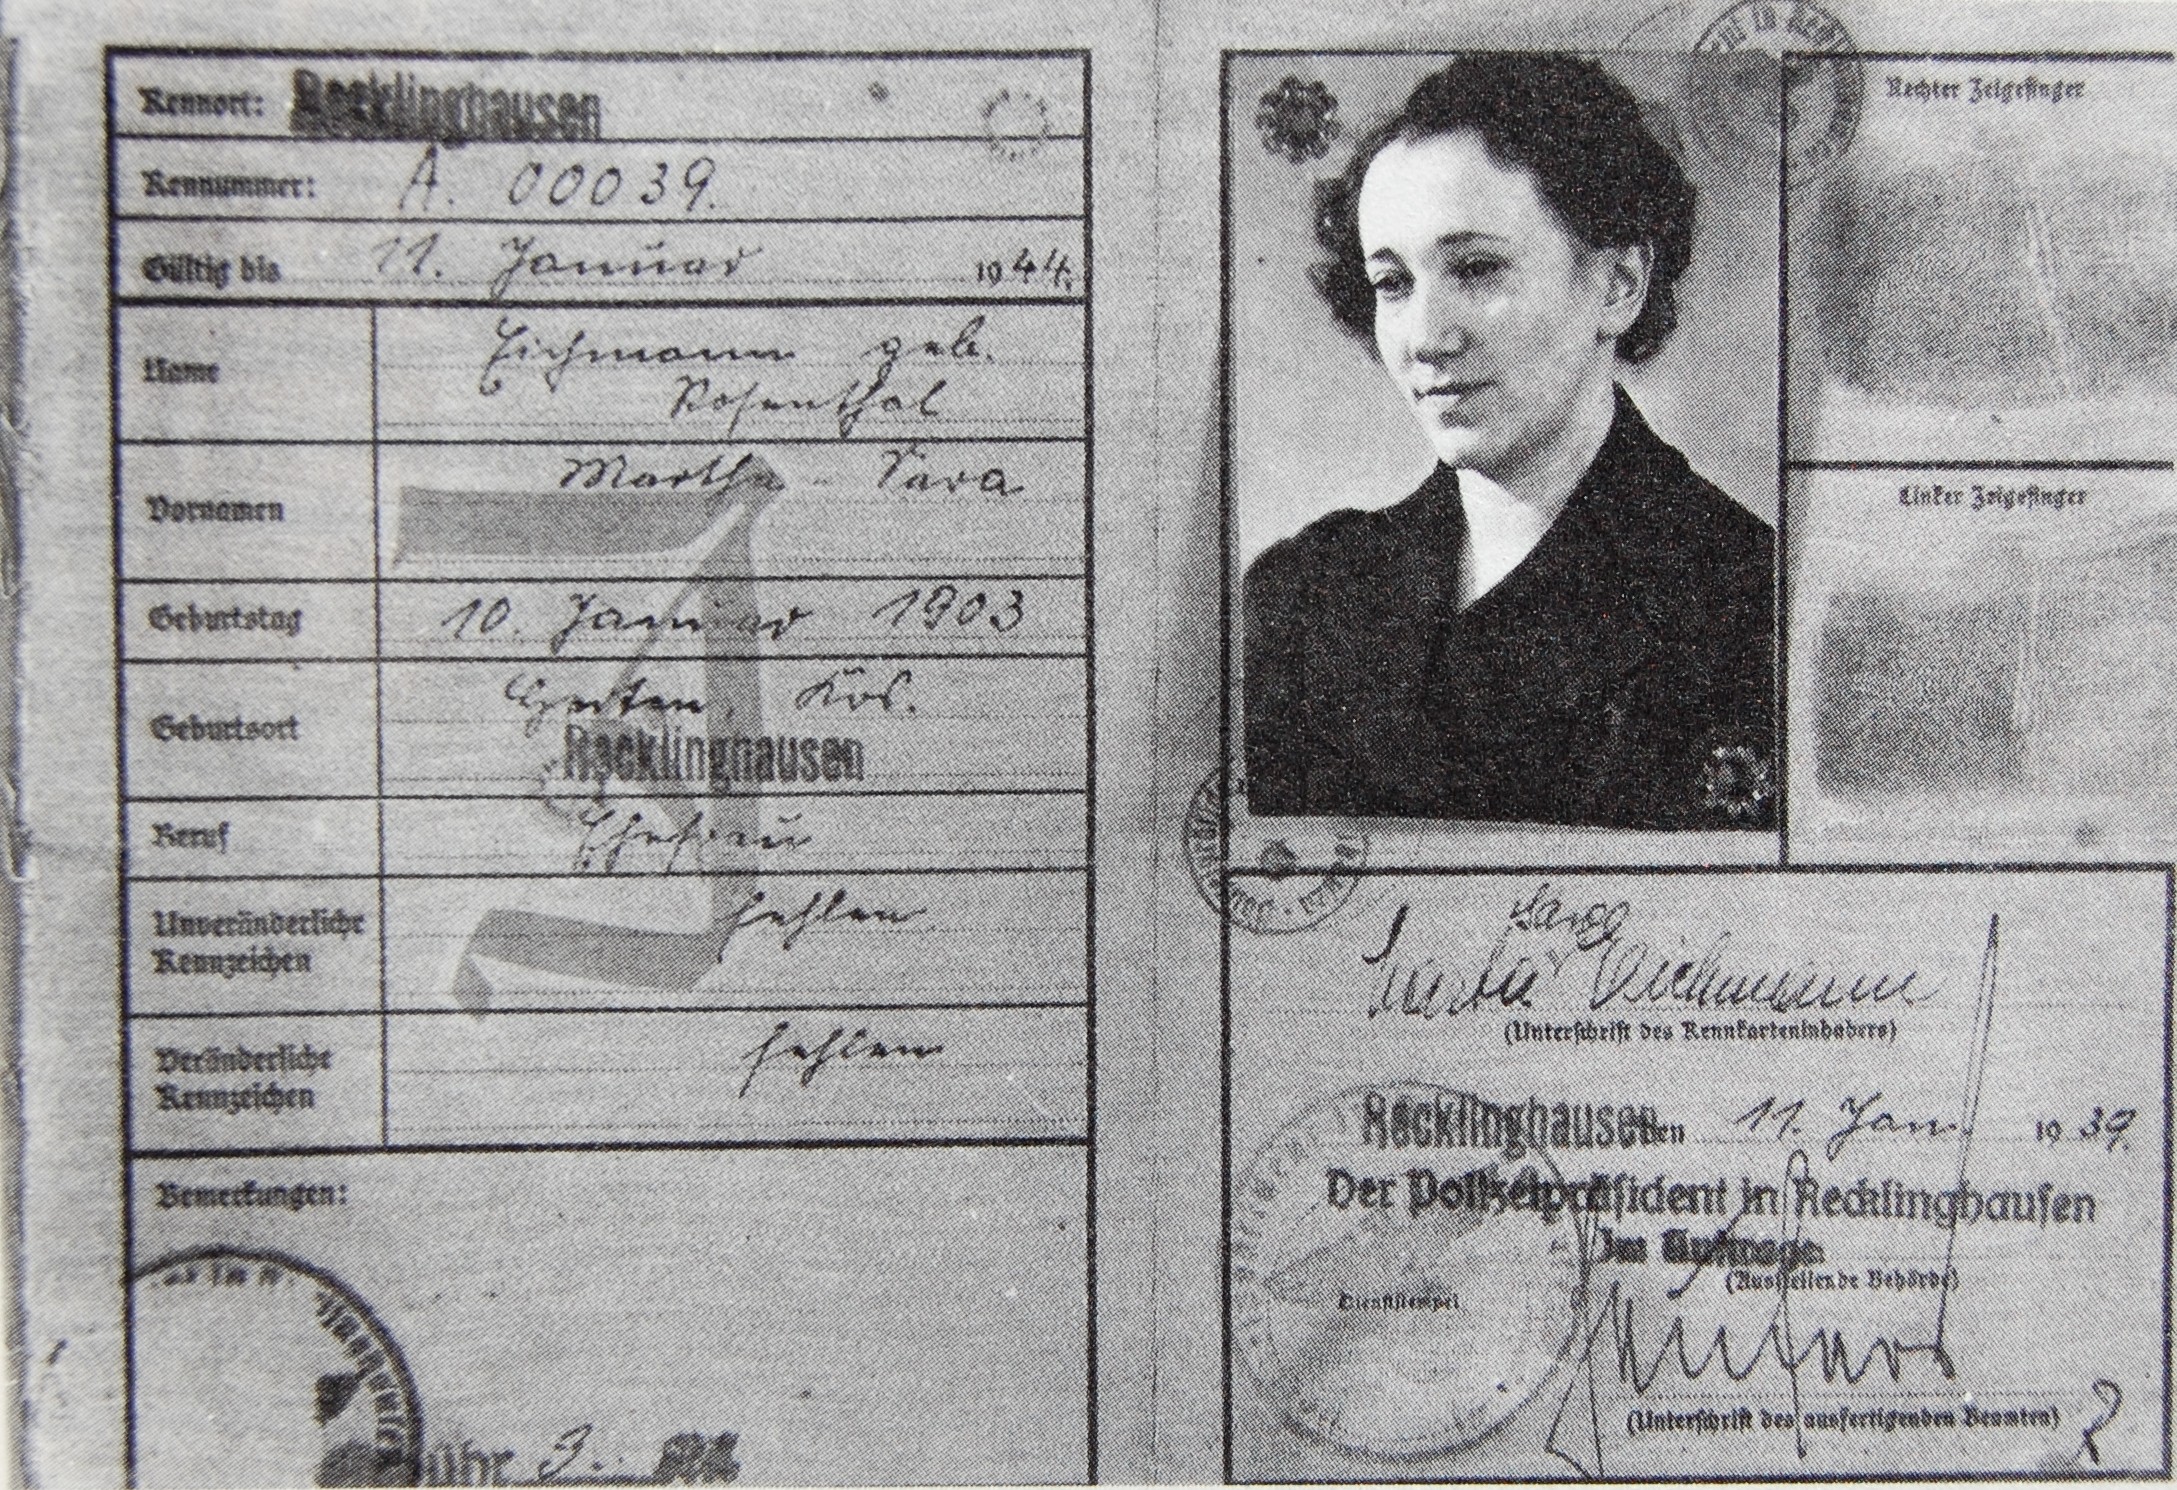 Kennort: Recklinghausen
Kennummer: A. 00039.
Gültig bis 11. Januar 1944.
Name Eichmann geb.
Rosenthal
Vornamen Martha - Sara
Geburtstag 10. Januar 1903
Geburtsort Herten, Krs.
Recklinghausen
Beruf Ehefrau
Unveränderliche Kennzeichen fehlen
Veränderliche Kennzeichen fehlen
Bemerkungen:
3.
RM
Rechter Zeigefinger
Linker Zeigefinger
Sara
Martha Eichmann
(Unterschrift des Kennkarteninhabers)
Recklinghausen den 11. Jan. 1939.
Der Polizeipräsident in Recklinghausen
Im Auftrage
(Ausstellende Behörde)
Dienststempel
(Unterschrift des ausfertigenden Beamten)